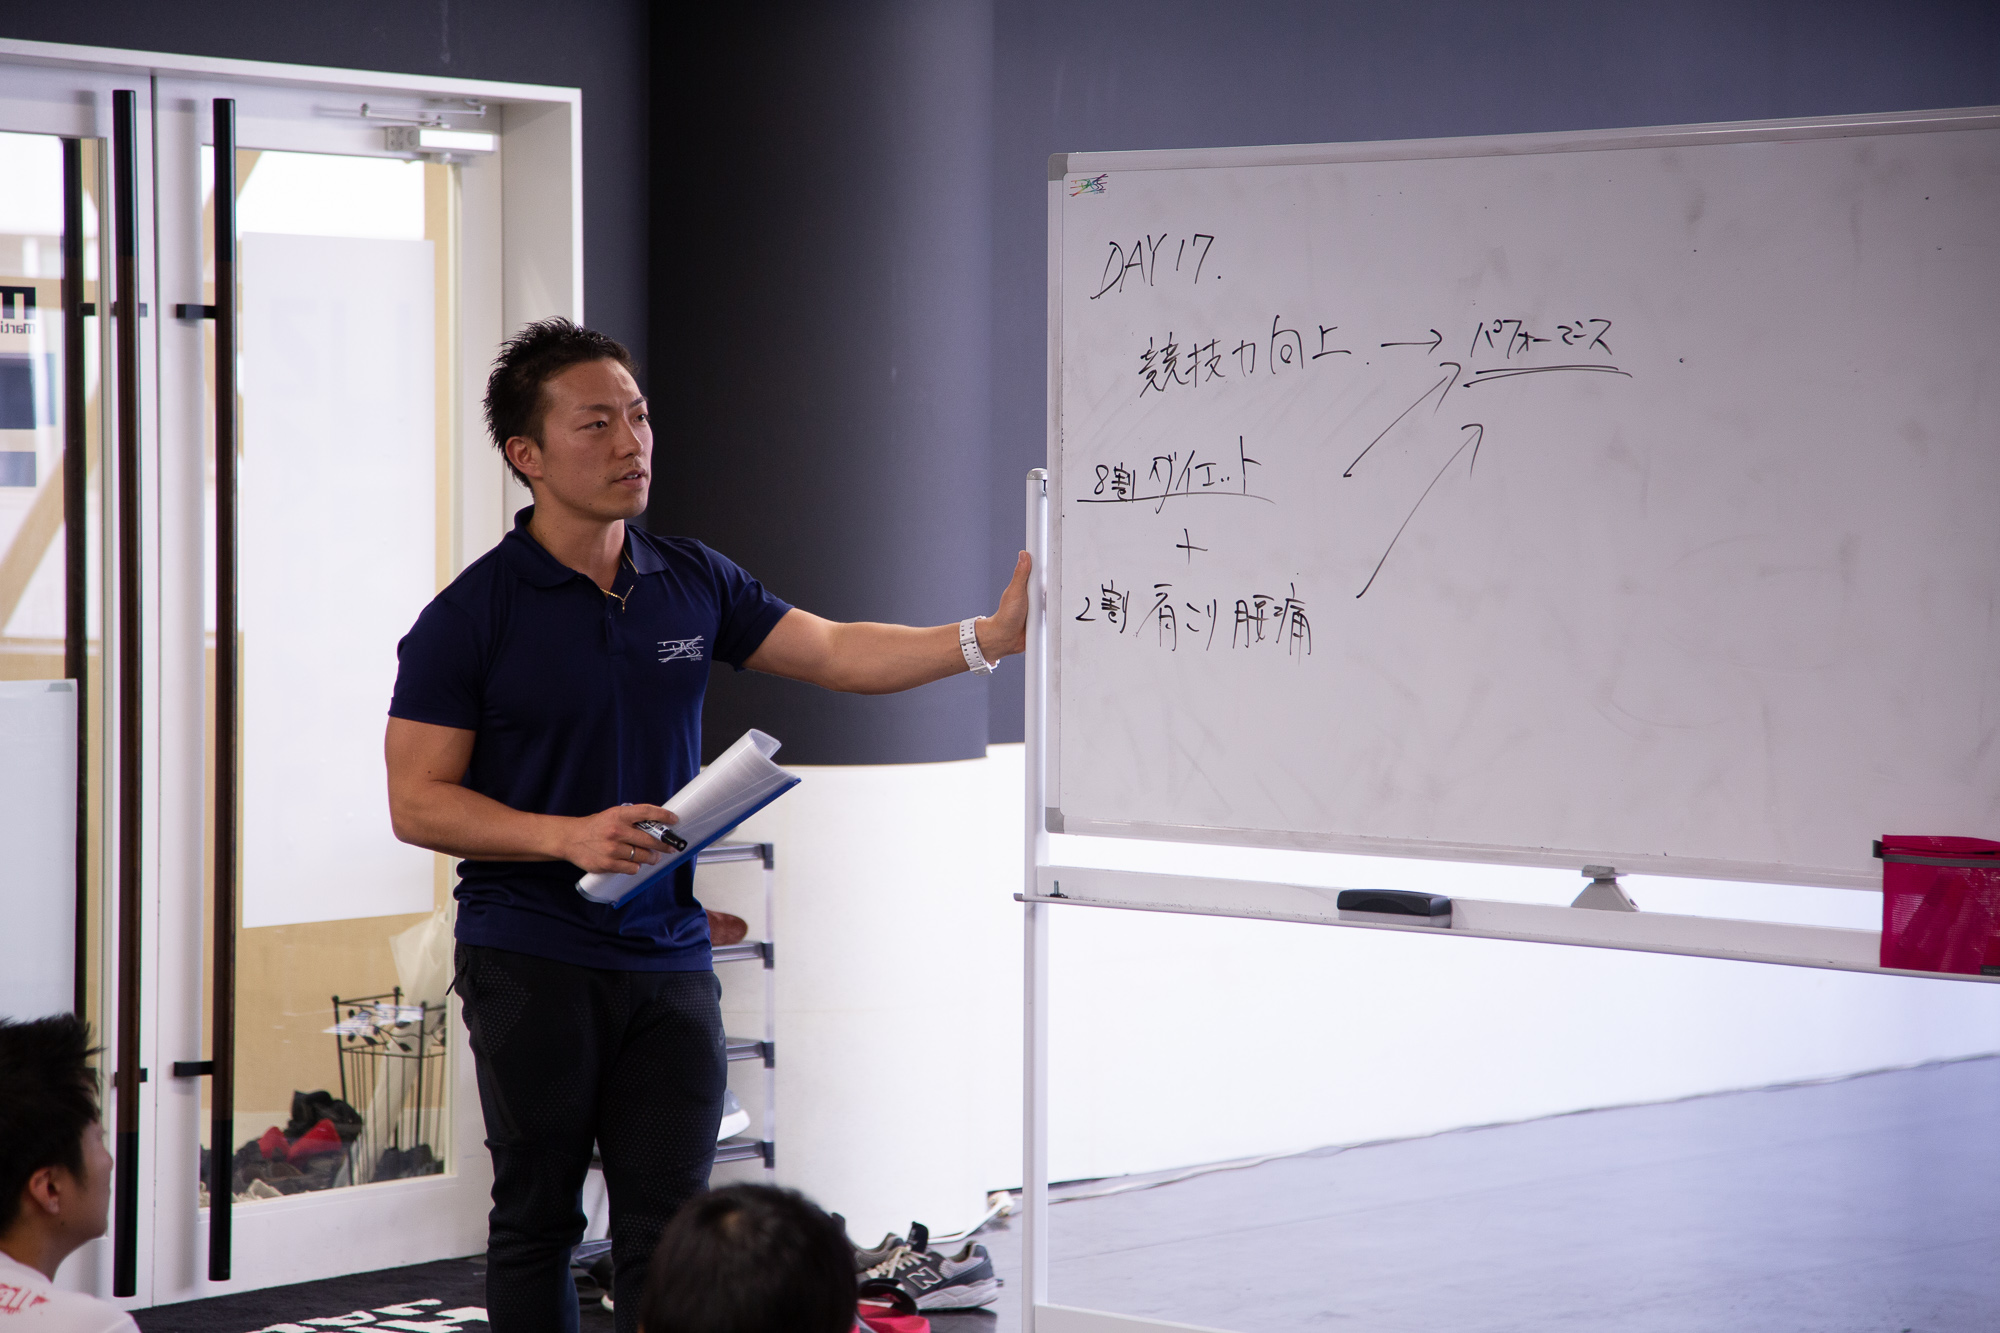 DASS
DAY 17.
競技力向上. → パフォーマンス
8割 ダイエット
+
2割 肩こり 腰痛
DASS
N